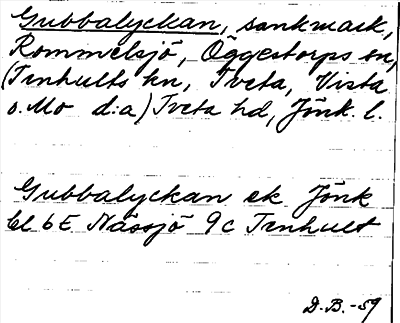 Gubbalyckan, sankmark,
Rommelsjö, Öggestorps sn,
(Tenhults kn, Tveta, Vista
o. Mo d:a) Tveta hd, Jönk. l.
Gubbalyckan ek Jönk
bl 6E Nässjö 9c Tenhult
D.B.-59